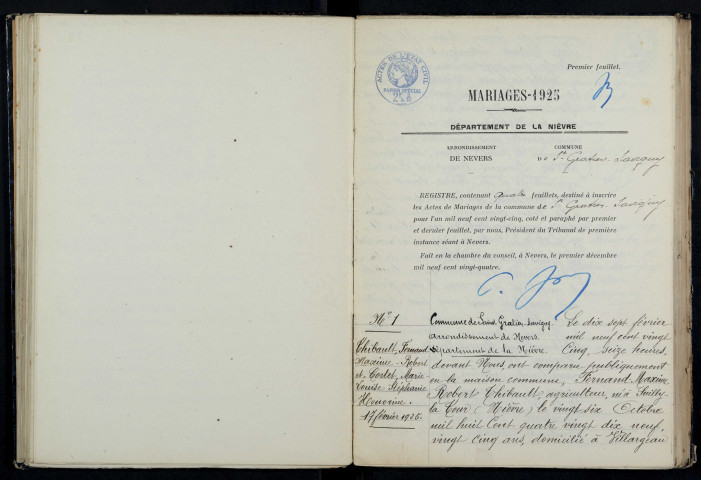 Premier feuillet.
ACTES DE L'ETAT CIVIL
PAPIER SPÉCIAL
MARIAGES-1925
DÉPARTEMENT DE LA NIÈVRE
ARRONDISSEMENT
DE NEVERS
COMMUNE
DE St Gratien Savigny
REGISTRE, contenant quatre feuillets, destiné à inscrire
les Actes de Mariages de la commune de St Gratien Savigny
pour l'an mil neuf cent vingt-cinq, coté et paraphé par premier
et dernier feuillet, par nous, Président du Tribunal de première
instance séant à Nevers.
Fait en la chambre du conseil, à Nevers, le premier décembre
mil neuf cent vingt-quatre.
No 1
Thibault, Fernand
Maxime-Robert
et Cortet, Marie
Louise Stéphanie
Honorine.
17 février 1925.
Commune de Saint Gratien-Savigny.
Arrondissement de Nevers.
Département de la Nièvre.
Le dix sept février
mil neuf cent vingt
Cinq, Seize heures,
devant Nous, ont comparu publiquement
en la maison commune, Fernand Maxime
Robert Thibault, agriculteur, né à Suilly
la Tour (Nièvre) le vingt six Octobre
mil huit Cent quatre vingt dix neuf,
vingt cinq ans, domicilié à Villargeau